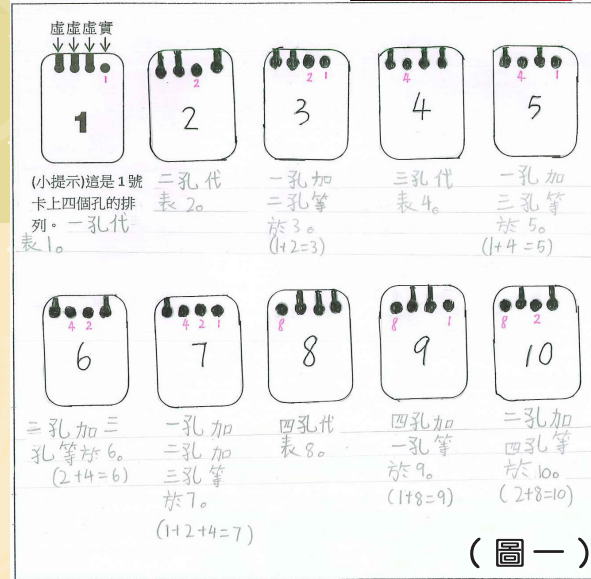 虛虛虛實
1
1
(小提示)這是1號
卡上四個孔的排
列。一孔代
表1。
2
2
二孔代
表2。
2 1
3
一孔加
二孔等
於3。
(1+2=3)
4
4
三孔代
表4。
4 1
5
一孔加
三孔等
於5。
(1+4=5)
4 2
6
二孔加三
孔等於6。
(2+4=6)
4 2 1
7
一孔加
二孔加
三孔等
於7。
(1+2+4=7)
8
8
四孔代
表8。
8 1
9
四孔加
一孔等
於9。
(1+8=9)
8 2
10
二孔加
四孔等
於10。
(2+8=10)
(圖一)